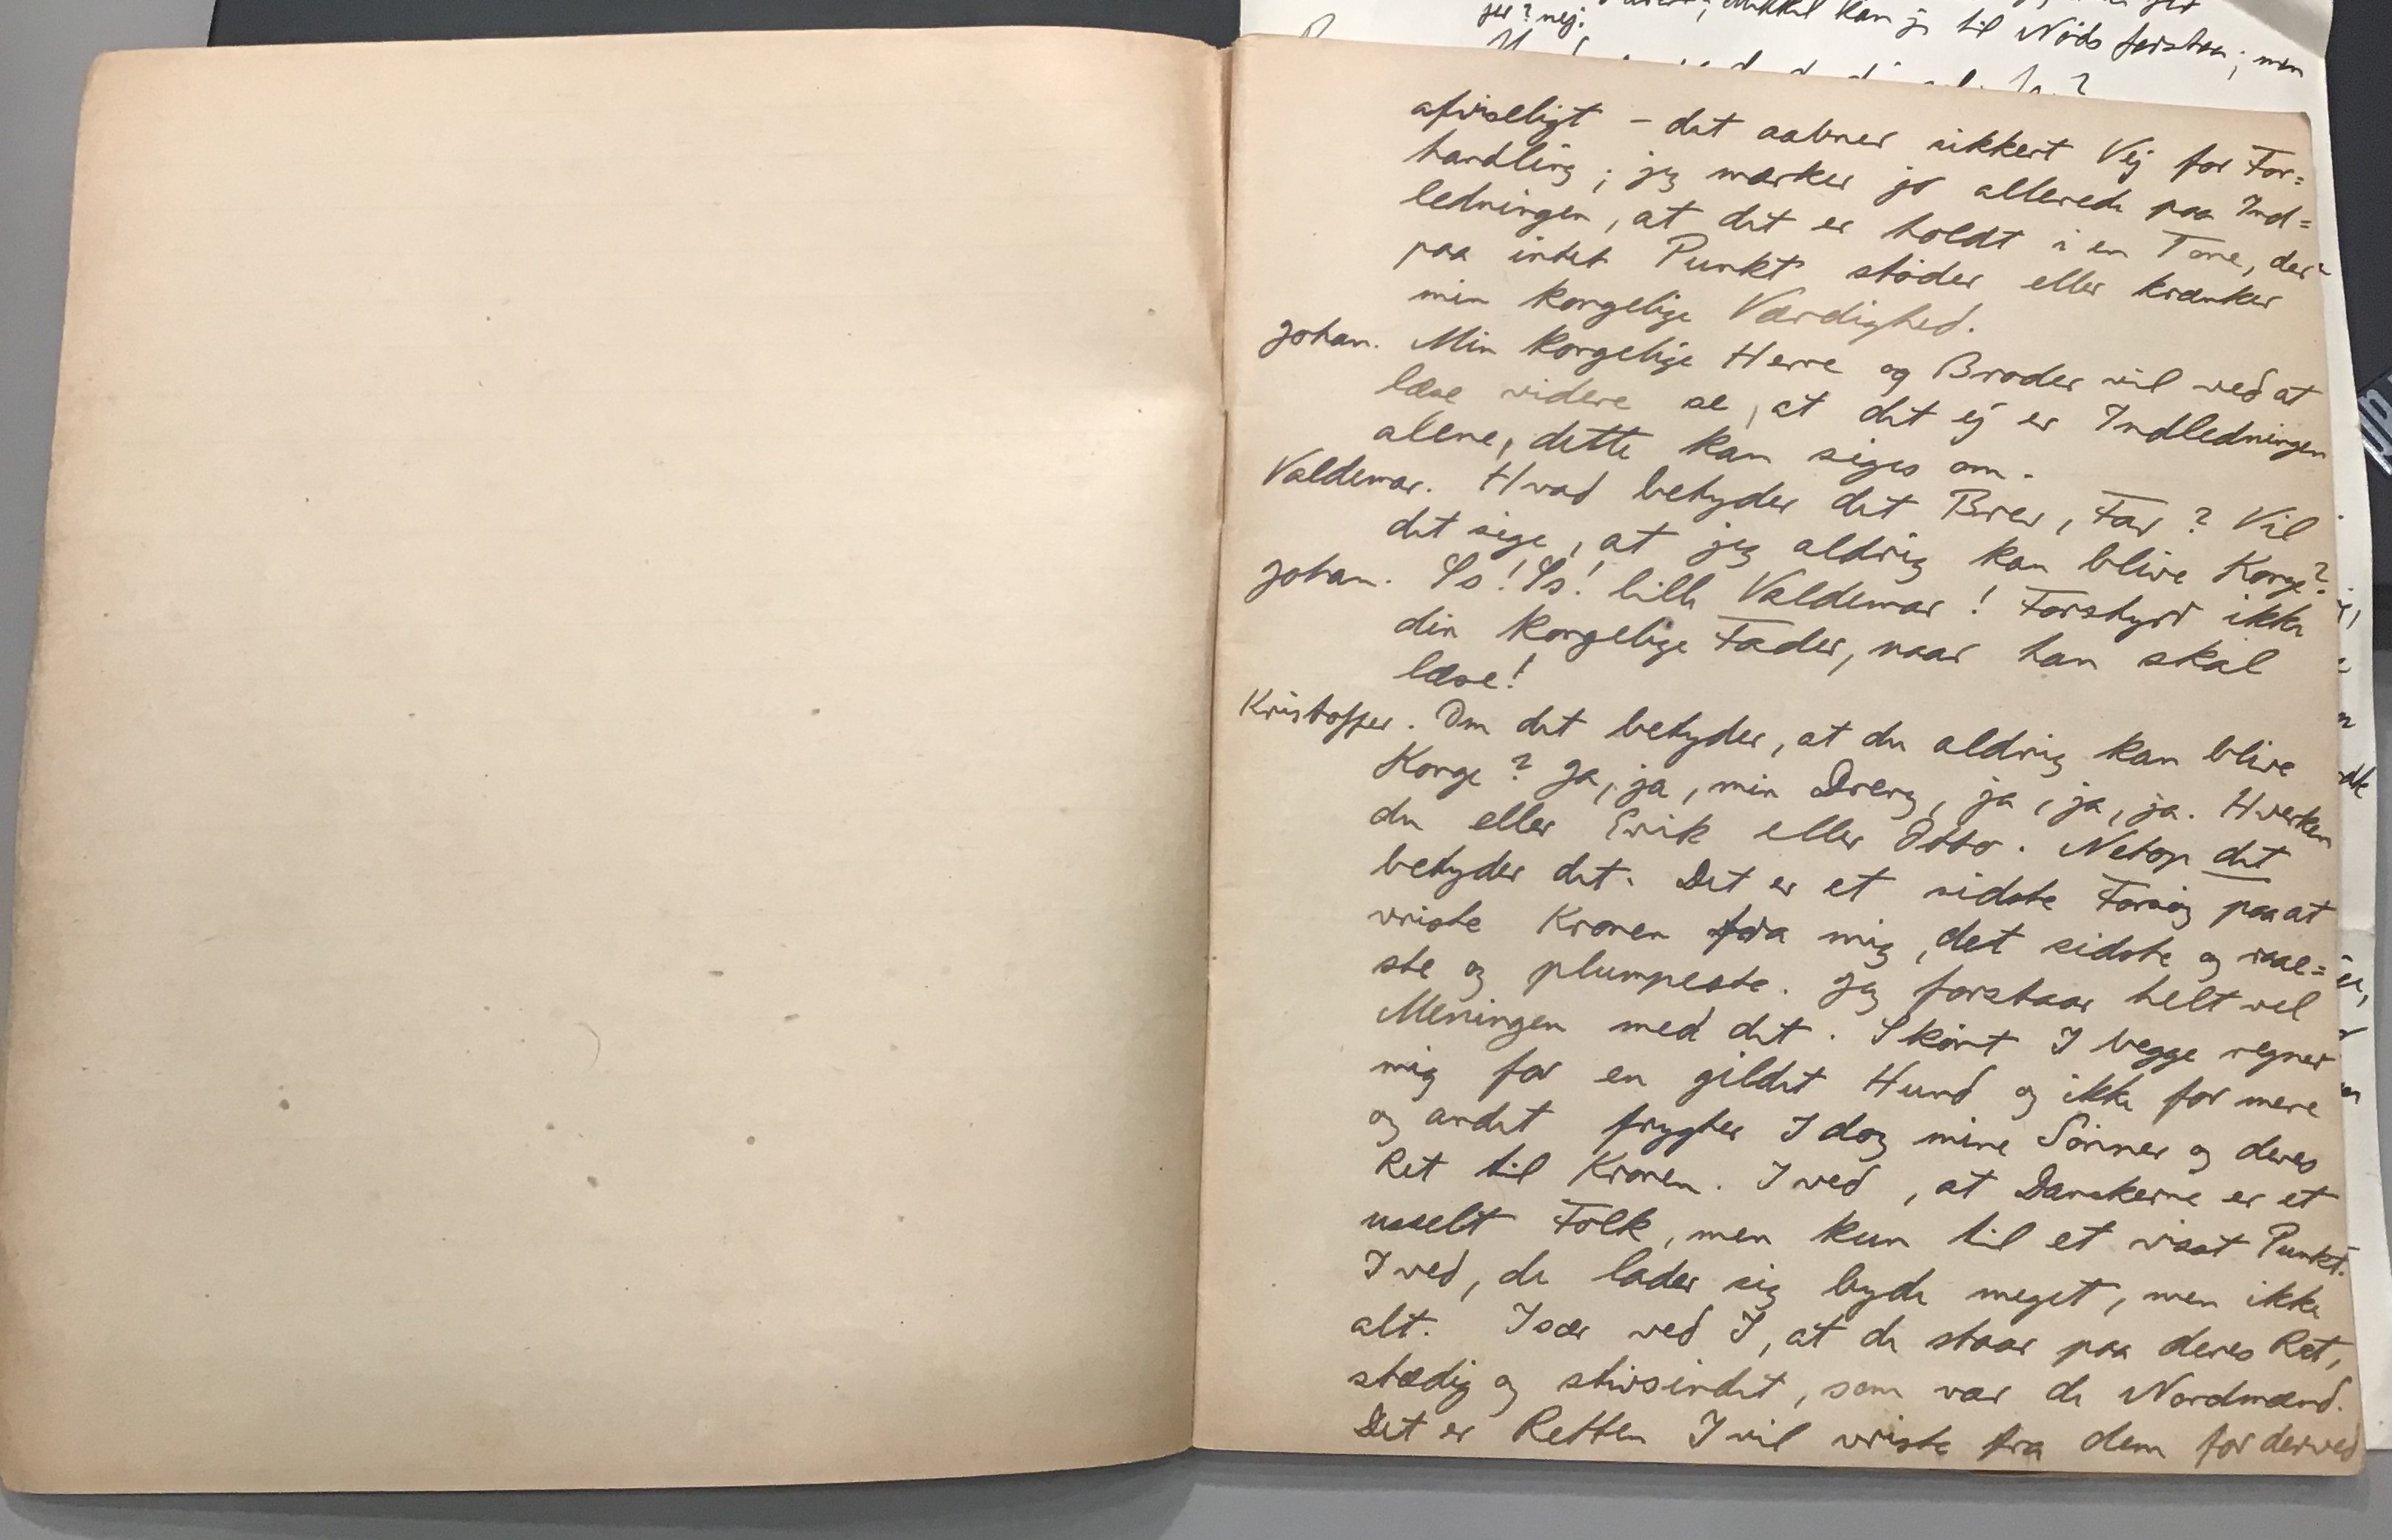 jer? nej. kan jo til Nöds forstaa; men
afviseligt – det aabner sikkert Vej for For=
handling; jeg mærker jo allerede paa Ind=
ledningen, at det er holdt i en Tone, der
paa intet Punkt støder eller krænker
min kongelige Værdighed.
Johan. Min kongelige Herre og Broder vil ved at
læse videre se, at det ej er Indledningen
alene, dette kan siges om.
Valdemar. Hvad betyder det Brev, Far? Vil
det sige, at jeg aldrig kan blive Konge?
Johan. Ss! Ss! lille Valdemar! Forstyrr ikke
din kongelige Fader, naar han skal
læse!
Kristoffer. Om det betyder, at du aldrig kan blive
Konge? Ja, ja, min Dreng, ja, ja, ja. Hverken
du eller Erik eller Otto. Netop det
betyder det. Det er et sidste Forsög paa at
vriste Kronen fra mig, det sidste og raae=
ste og plumpeste. Jeg forstaar helt vel
Meningen med det. Skönt I begge regner
mig for en gildet Hund og ikke for mere
og andet frygter I dog mine Sönner og deres
Ret til Kronen. I ved, at Danskerne er et
usselt Folk, men kun til et visst Punkt.
I ved, de lader sig byde meget, men ikke
alt. Især ved I, at de staar paa deres Ret,
stædig og stivsindet, som var de Nordmænd.
Det er Retten I vil vriste fra dem for derved